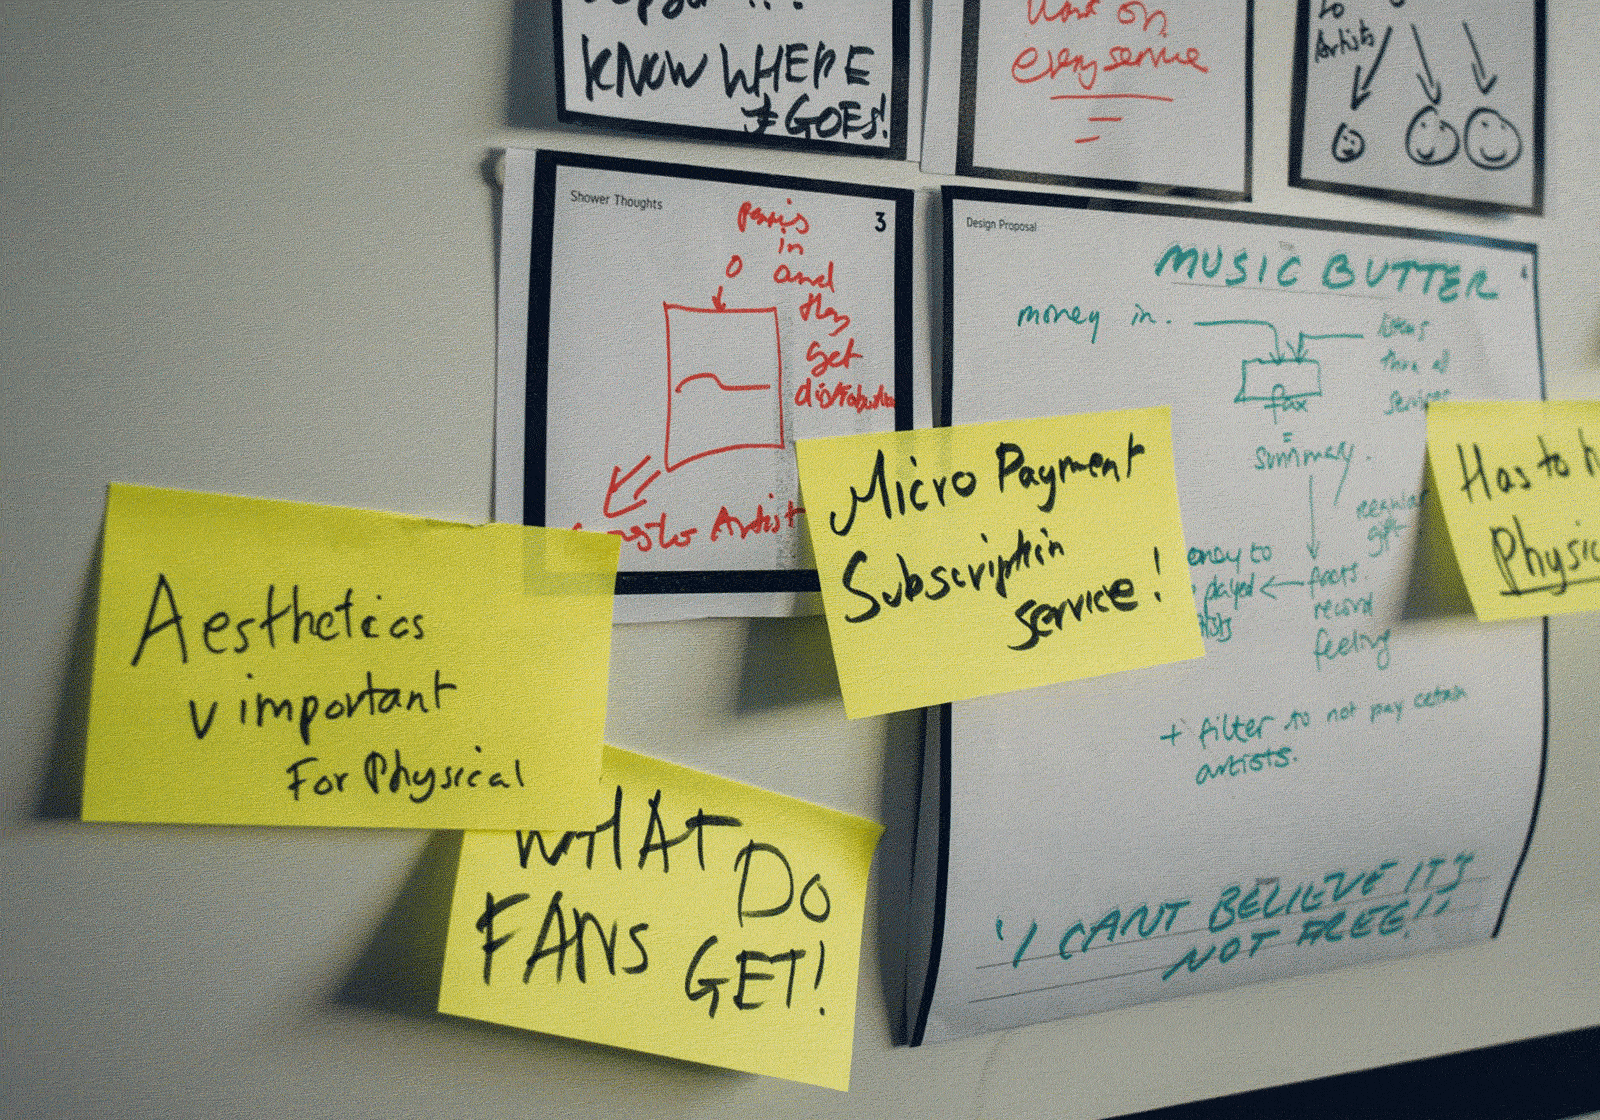 KNOW WHERE
IT GOES!
work on
every service
to
Artists
Shower Thoughts
3
in
and
they
get
Artist
Design Proposal
Title
MUSIC BUTTER
money in.
listens
services
=
summary.
regular
gift
money to
played
facts
record
feeling
+ filter to not pay cetain
artists.
'I CANT BELIEVE IT'S
NOT FREE!'
Micro Payment
Subscription
service!
Has to
Physic
Aesthetics
v important
For Physical
WHAT DO
FANS GET!